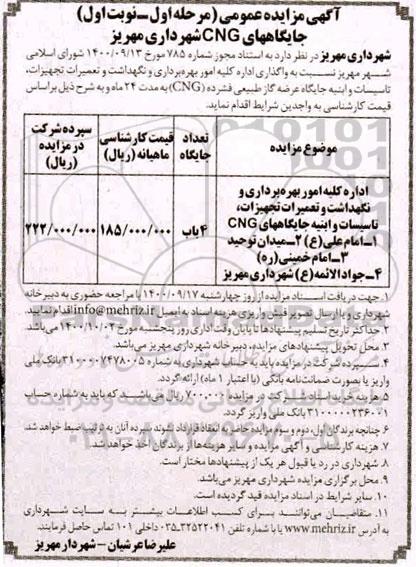 آگهی مزایده عمومی (مرحله اول ـ نوبت اول)
جایگاههای CNG شهرداری مهریز
شهرداری مهریز در نظر دارد به استناد مجوز شماره ۷۸۵ مورخ ۱۴۰۰/۰۹/۱۳ شورای اسلامی
شهر مهریز نسبت به واگذاری اداره کلیه امور بهره‌برداری و نگهداشت و تعمیرات تجهیزات،
تاسیسات و ابنیه جایگاه عرضه گاز طبیعی فشرده (CNG) به مدت ۲۴ ماه و به شرح ذیل بر اساس
قیمت کارشناسی به واجدین شرایط اقدام نماید.
موضوع مزایده
تعداد جایگاه
قیمت کارشناسی ماهیانه (ریال)
سپرده شرکت در مزایده (ریال)
اداره کلیه امور بهره‌برداری و
نگهداشت و تعمیرات تجهیزات،
تاسیسات و ابنیه جایگاههای CNG
۱ـ امام علی (ع) ۲ـ میدان توحید
۳ـ امام خمینی (ره)
۴ـ جواد الائمه (ع) شهرداری مهریز
۴ باب
۱۸۵/۰۰۰/۰۰۰
۲۲۲/۰۰۰/۰۰۰
۱. جهت دریافت اسناد مزایده از روز چهارشنبه ۱۴۰۰/۰۹/۱۷ با مراجعه حضوری به دبیرخانه
شهرداری و یا ارسال تصویر فیش واریزی هزینه اسناد به ایمیل info@mehriz.ir اقدام نمایید.
۲. حداکثر تاریخ تسلیم پیشنهادها تا پایان وقت اداری روز پنجشنبه مورخ ۱۴۰۰/۱۰/۰۲ می‌باشد.
۳. محل تحویل پیشنهادهای مزایده، دبیرخانه شهرداری مهریز می‌باشد.
۴. سپرده شرکت در مزایده باید به حساب شهرداری به شماره ۳۱۰۰۰۰۷۴۷۸۰۰۵ بانک ملی
واریز یا بصورت ضمانت‌نامه بانکی (با اعتبار ۱ ماه) ارائه گردد.
۵. هزینه خرید اسناد شرکت در مزایده ۷۰۰/۰۰۰ ریال می‌باشد که باید به شماره حساب
۳۱۰۰۰۰۰۲۳۶۰۰۷ بانک ملی واریز گردد.
۶. چنانچه برندگان اول، دوم و سوم مزایده حاضر به انعقاد قرارداد نشوند سپرده آنان به ترتیب ضبط خواهد شد.
۷. هزینه کارشناسی و آگهی مزایده و سایر هزینه‌ها از برندگان اخذ خواهد شد.
۸. شهرداری در رد یا قبول هر یک از پیشنهادها مختار است.
۹. محل برگزاری مزایده شهرداری مهریز می‌باشد.
۱۰. سایر شرایط در اسناد مزایده قید گردیده است.
۱۱. متقاضیان می‌توانند برای کسب اطلاعات بیشتر به سایت شهرداری
به آدرس www.mehriz.ir یا با شماره تلفن ۳۲۵۲۲۰۴۱-۰۳۵ داخلی ۱۰۱ تماس حاصل فرمایند.
علیرضا عرشیان - شهردار مهریز